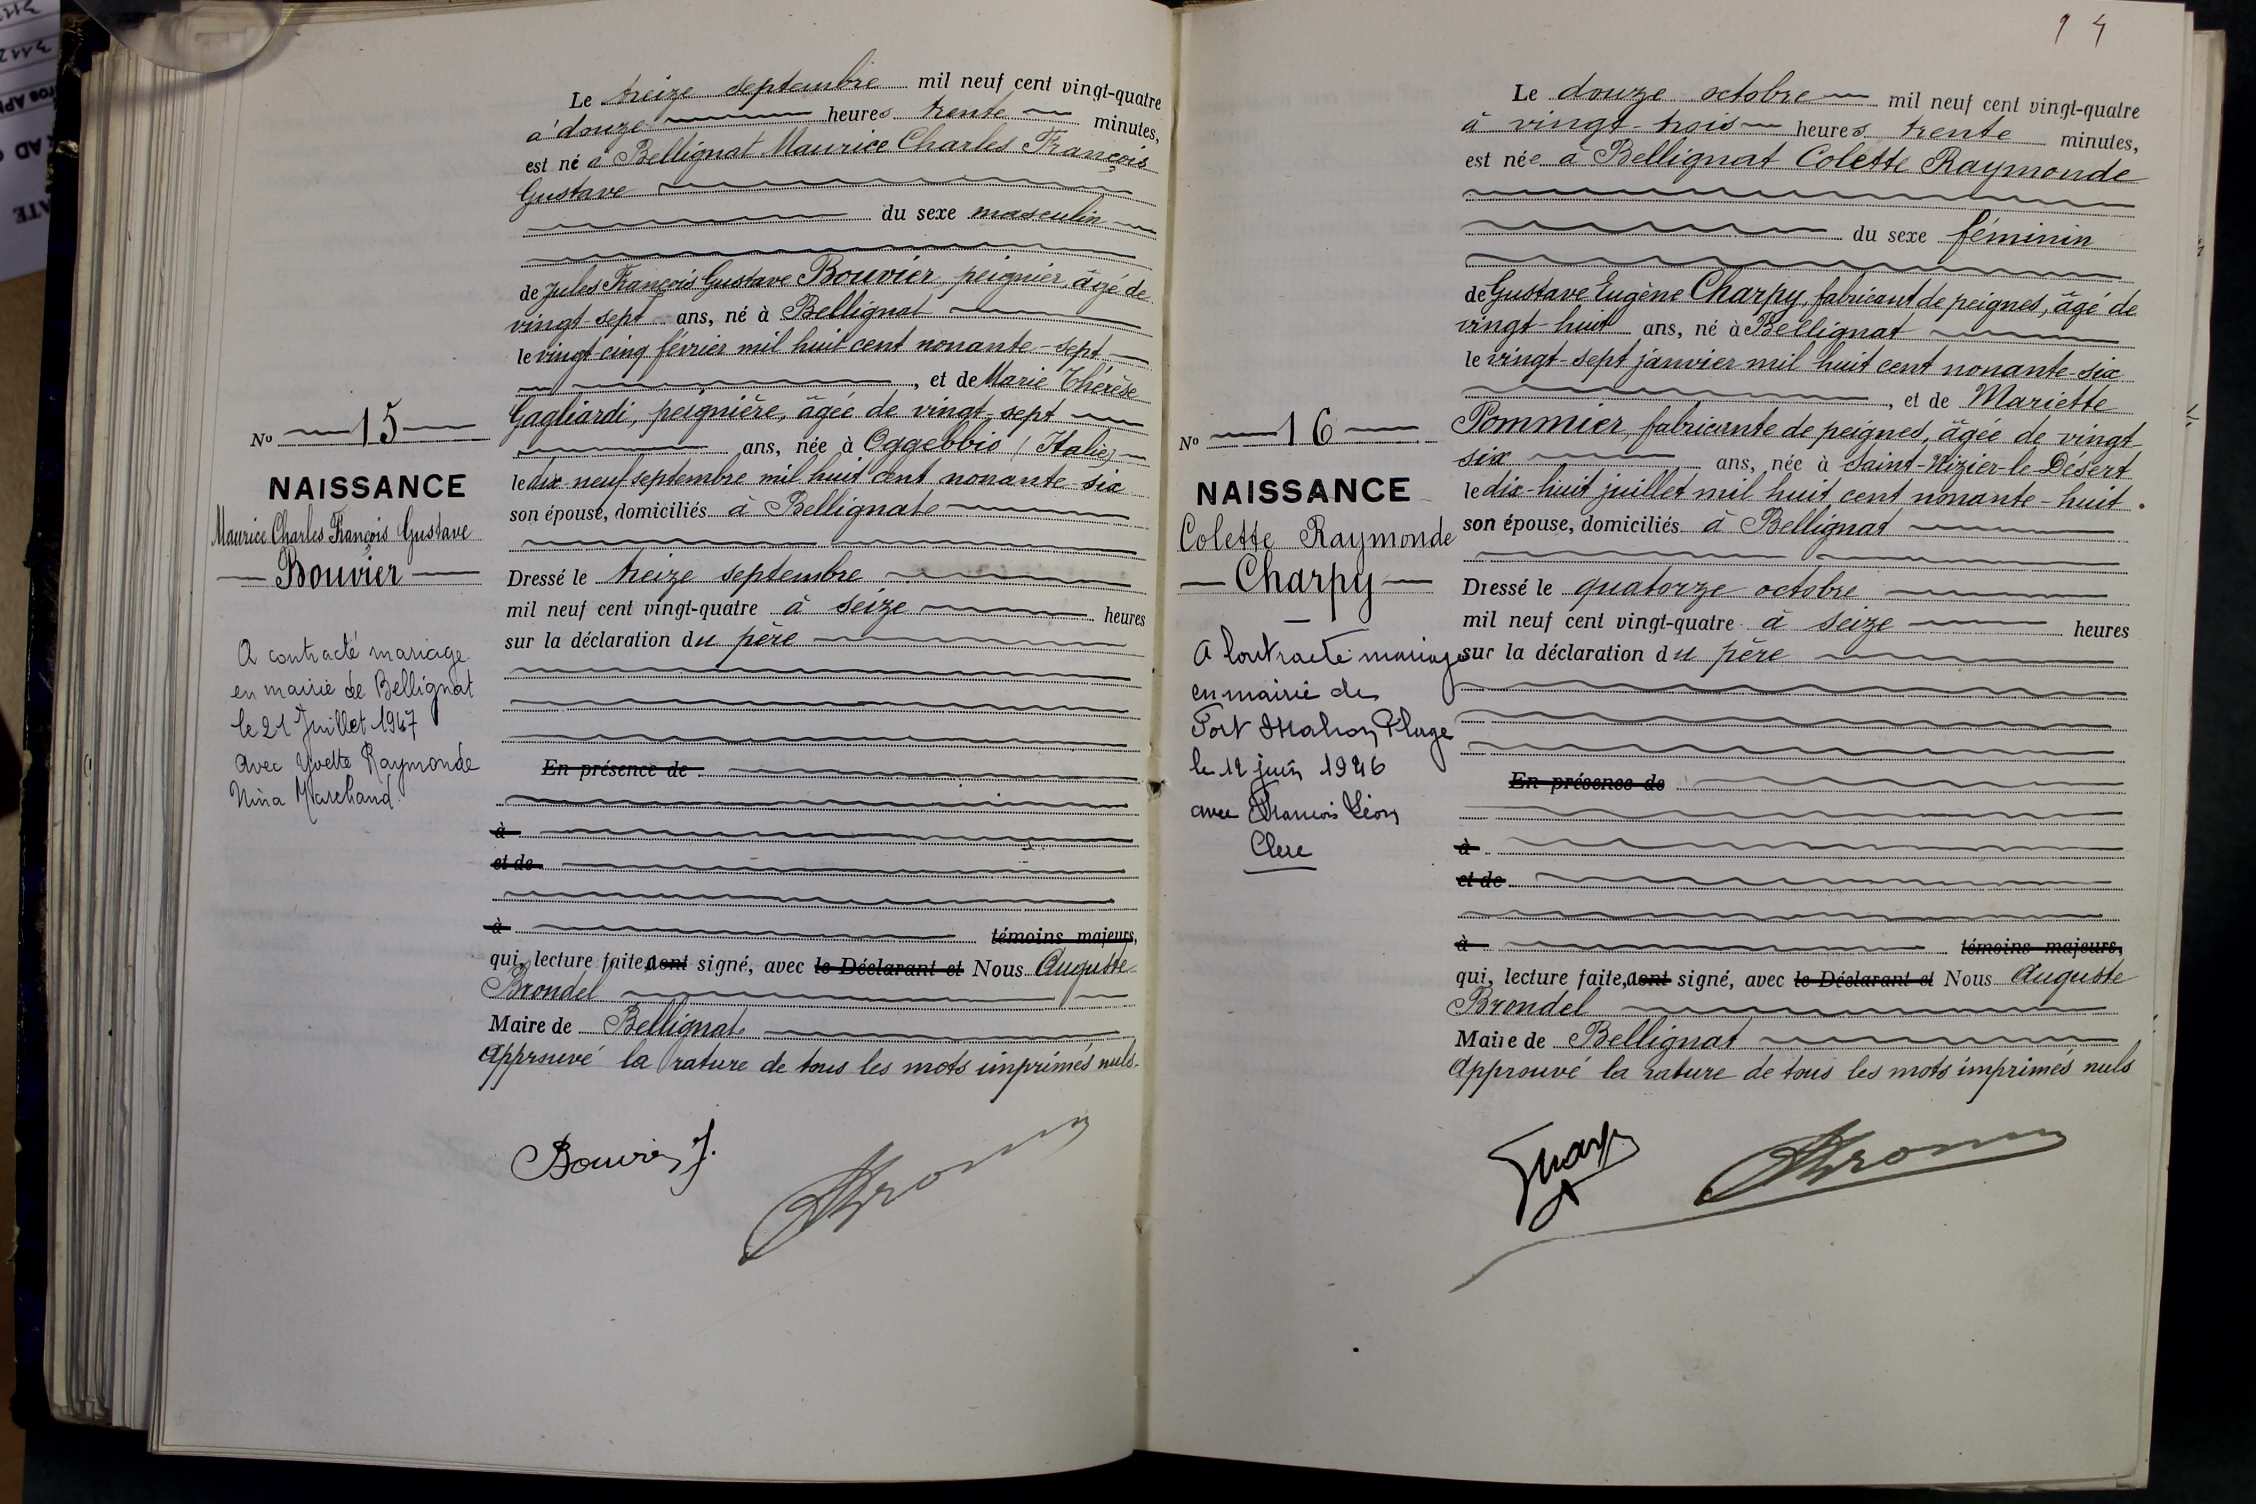 Le treize septembre mil neuf cent vingt-quatre
à douze heures trente minutes,
est né à Bellignat Maurice Charles François
Gustave
du sexe masculin
de Jules François Gustave Bouvier, peignier, âgé de
vingt-sept ans, né à Bellignat
le vingt-cinq février mil huit cent nonante-sept
, et de Marie Thérèse
Gagliardi, peignière, âgée de vingt-sept
ans, née à Oggebbio (Italie)
le dix-neuf septembre mil huit cent nonante-six
son épouse, domiciliés à Bellignat
Dressé le treize septembre
mil neuf cent vingt-quatre à seize heures
sur la déclaration du père
En présence de
à
et de
à témoins majeurs,
qui, lecture faite, a ont signé, avec le Déclarant et Nous Auguste
Brondel
Maire de Bellignat
Approuvé la rature de tous les mots imprimés nuls.
Bouvier J.
No 15
NAISSANCE
Maurice Charles François Gustave
Bouvier
A contracté mariage
en mairie de Bellignat
le 21 Juillet 1947
avec Yvette Raymonde
Nina Marchand.
14
Le douze octobre mil neuf cent vingt-quatre
à vingt-trois heures trente minutes,
est née à Bellignat Colette Raymonde
du sexe féminin
de Gustave Eugène Charpy, fabricant de peignes, âgé de
vingt-huit ans, né à Bellignat
le vingt-sept janvier mil huit cent nonante-six
, et de Mariette
Pommier, fabricante de peignes, âgée de vingt-
six ans, née à Saint-Nizier-le-Désert
le dix-huit juillet mil huit cent nonante-huit
son épouse, domiciliés à Bellignat
Dressé le quatorze octobre
mil neuf cent vingt-quatre à seize heures
sur la déclaration du père
En présence de
à
et de
à témoins majeurs,
qui, lecture faite, a ont signé, avec le Déclarant et Nous Auguste
Brondel
Maire de Bellignat
Approuvé la rature de tous les mots imprimés nuls
No 16
NAISSANCE
Colette Raymonde
Charpy
A contracté mariage
en mairie de
Fort Mahon Plage
le 12 juin 1946
avec François Léon
Clerc